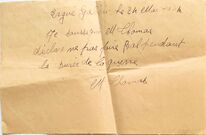 Ergué Ga le 24 Mai
Je soussigné M Thomas
déclare ne pas faire Bal pendant
la durée de la guerre
M Thomas